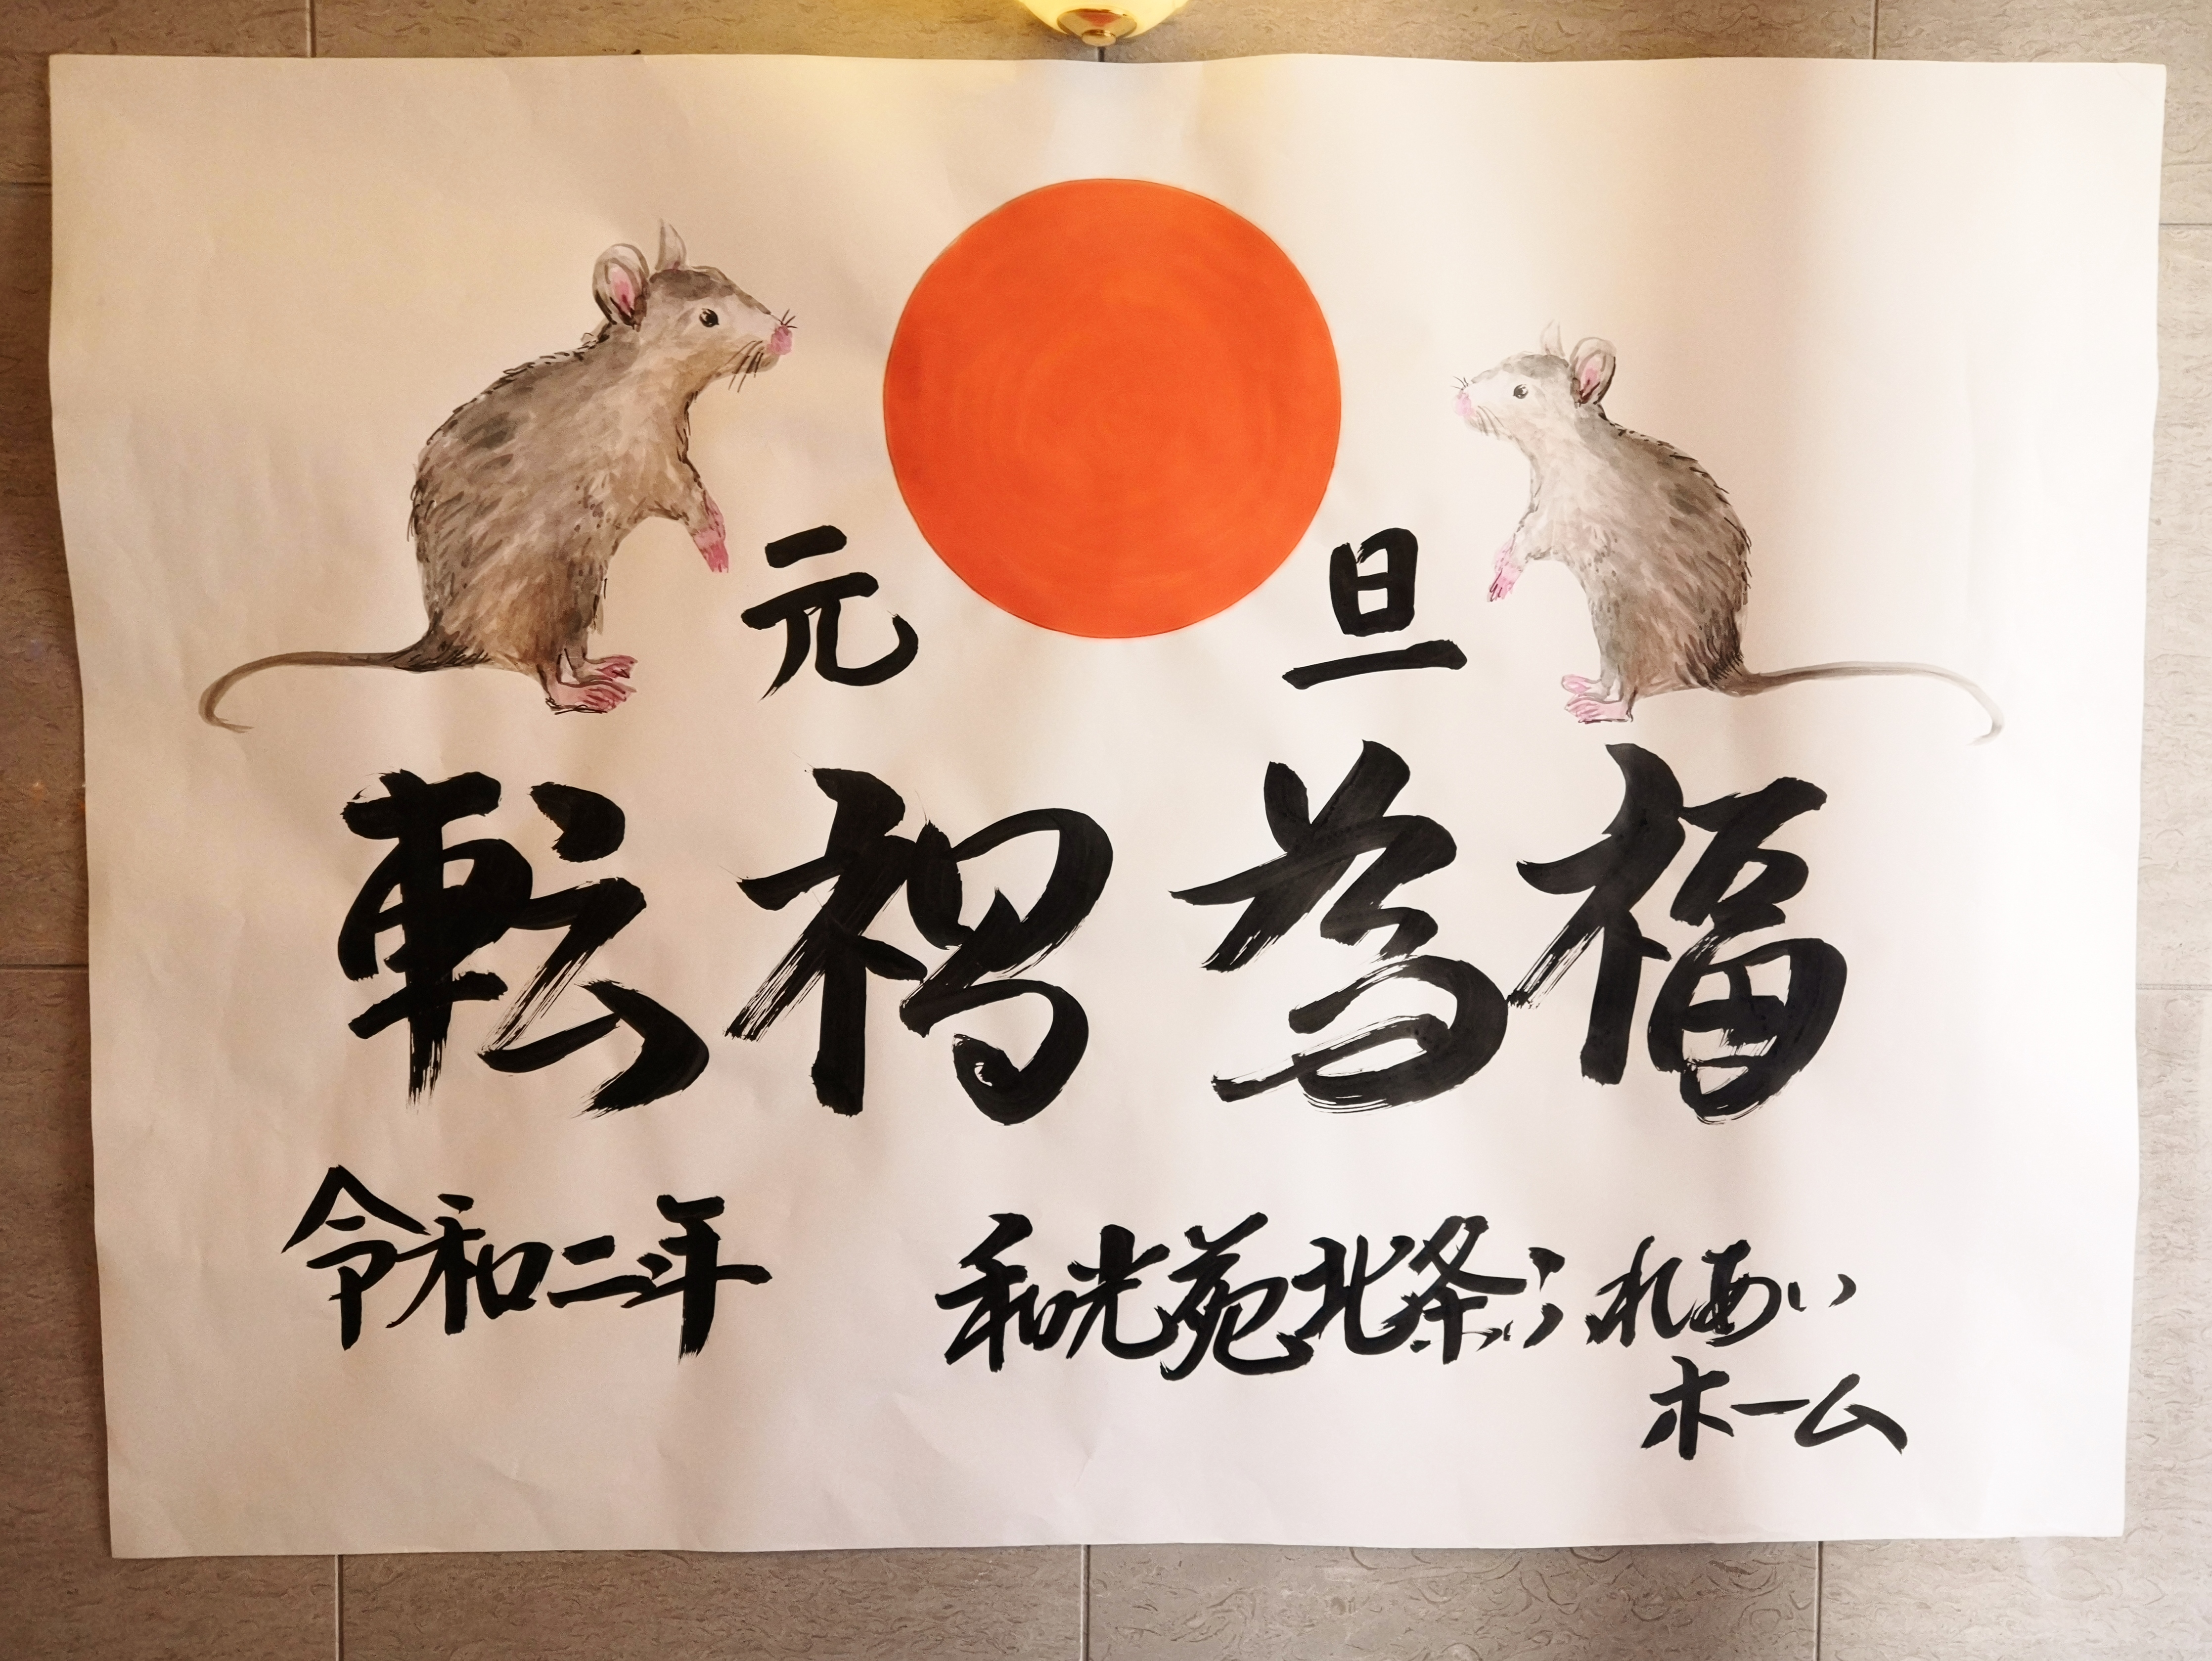 元旦
転禍為福
令和二年 和光苑北条ふれあい
ホーム